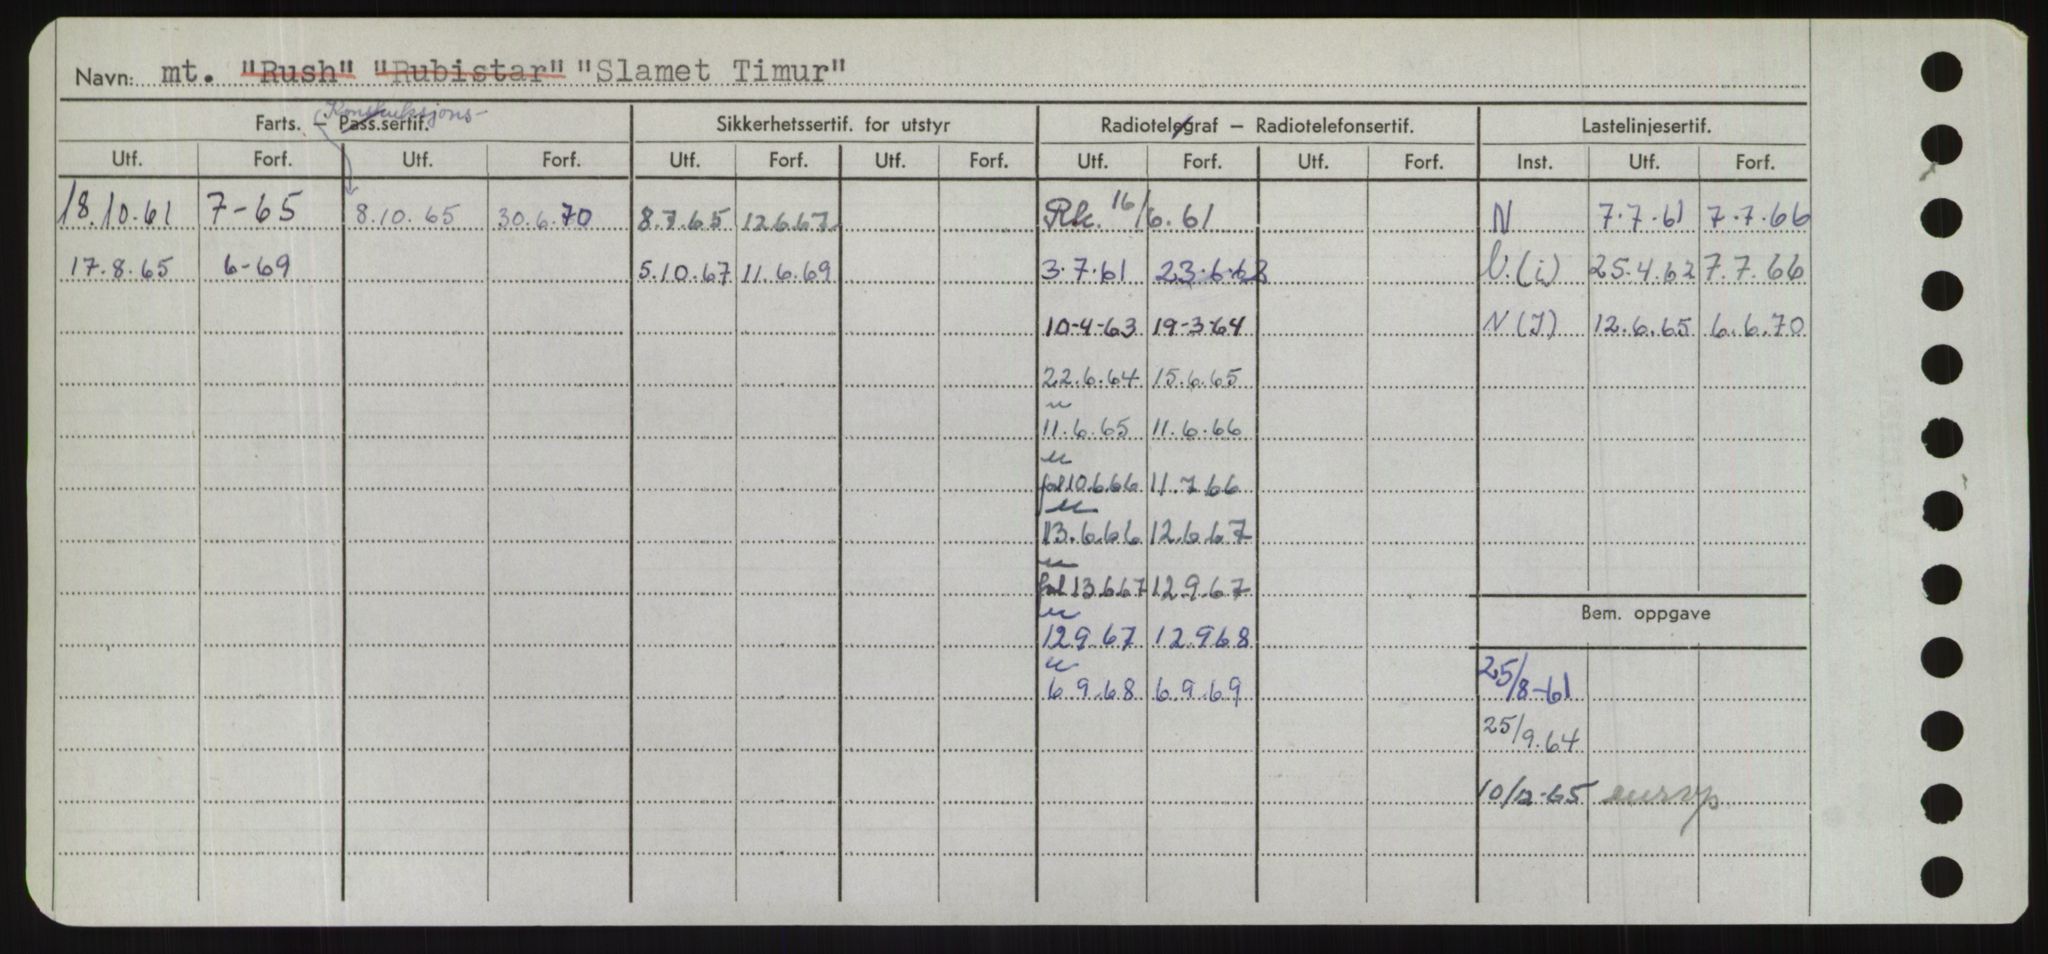 Navn: mt. "Rush" "Rubistar" "Slamet Timur"
Konstruksjons-
Farts. – Pass.sertif. Sikkerhetssertif. for utstyr Radiotelegraf – Radiotelefonsertif. Lastelinjesertif.
Utf. Forf. Utf. Forf. Utf. Forf. Utf. Forf. Utf. Forf. Utf. Forf. Inst. Utf. Forf.
18.10.61 7-65 8.10.65 30.6.70 8.7.65 12.6.67 Rk. 16/6.61 N 7.7.61 7.7.66
17.8.65 6-69 5.10.67 11.6.69 3.7.61 23.6.62 U.(i) 25.4.62 7.7.66
10-4-63 19-3-64 N(I) 12.6.65 6.6.70
22.6.64 15.6.65
u
11.6.65 11.6.66
u
fol 10.6.66 11.7.66
u
13.6.66 12.6.67
u
fol 13.6.67 12.9.67
Bem. oppgave
u
12.9.67 12.9.68
u
6.9.68 6.9.69 25/8-61
25/9.64
10/12-65